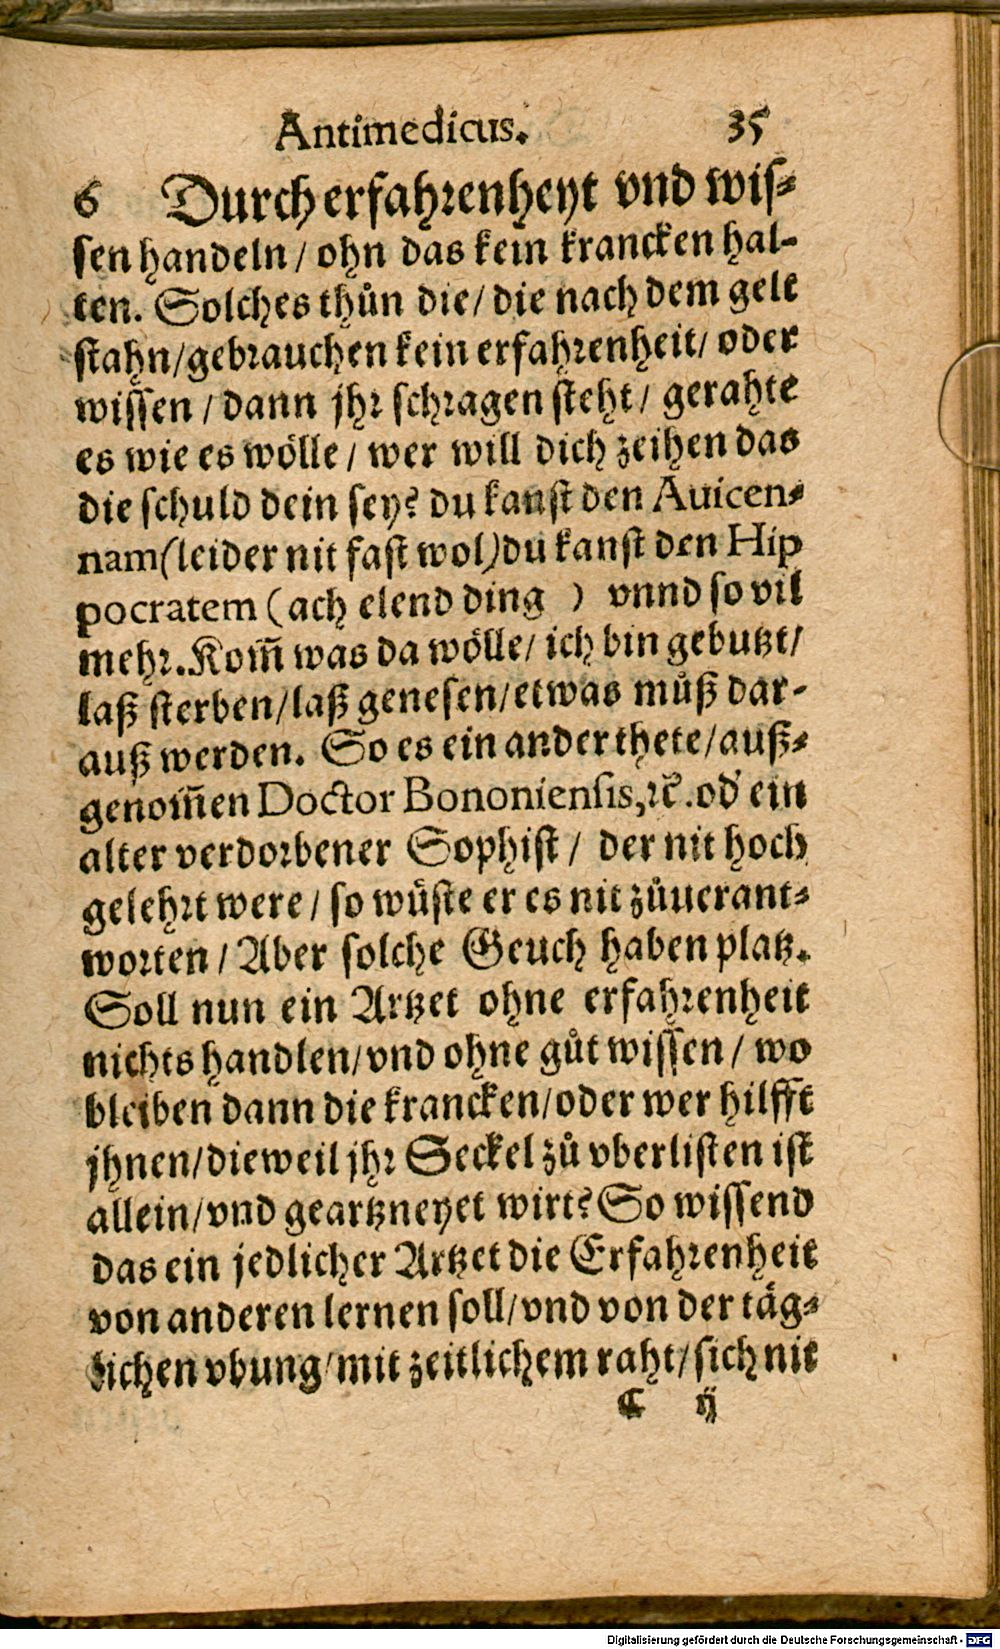 Antimedicus. 35
6 Durch erfahrenheyt vnd wis⸗
sen handeln / ohn das kein krancken hal-
ten. Solches thůn die / die nach dem gelt
stahn / gebrauchen kein erfahrenheit / oder
wissen / dann jhr schragen steht / gerahte
es wie es wölle / wer will dich zeihen das
die schuld dein sey? du kanst den Auicen⸗
nam (leider nit fast wol) du kanst den Hip
pocratem ( ach elend ding ) vnnd so vil
mehr. Kom̃ was da wölle / ich bin gebutzt /
laß sterben / laß genesen / etwas můß dar-
auß werden. So es ein ander thete / auß⸗
genom̃en Doctor Bononiensis, ꝛc̃. od' ein
alter verdorbener Sophist / der nit hoch
gelehrt were / so wůste er es nit zůuerant⸗
worten / Aber solche Geuch haben platz.
Soll nun ein Artzet ohne erfahrenheit
nichts handlen / vnd ohne gůt wissen / wo
bleiben dann die krancken / oder wer hilfft
jhnen / dieweil jhr Seckel zů vberlisten ist
allein / vnd geartzneyet wirt? So wissend
das ein jedlicher Artzet die Erfahrenheit
von anderen lernen soll / vnd von der täg⸗
lichen vbung / mit zeitlichem raht / sich nit
C ij
Digitalisierung gefördert durch die Deutsche Forschungsgemeinschaft - DFG